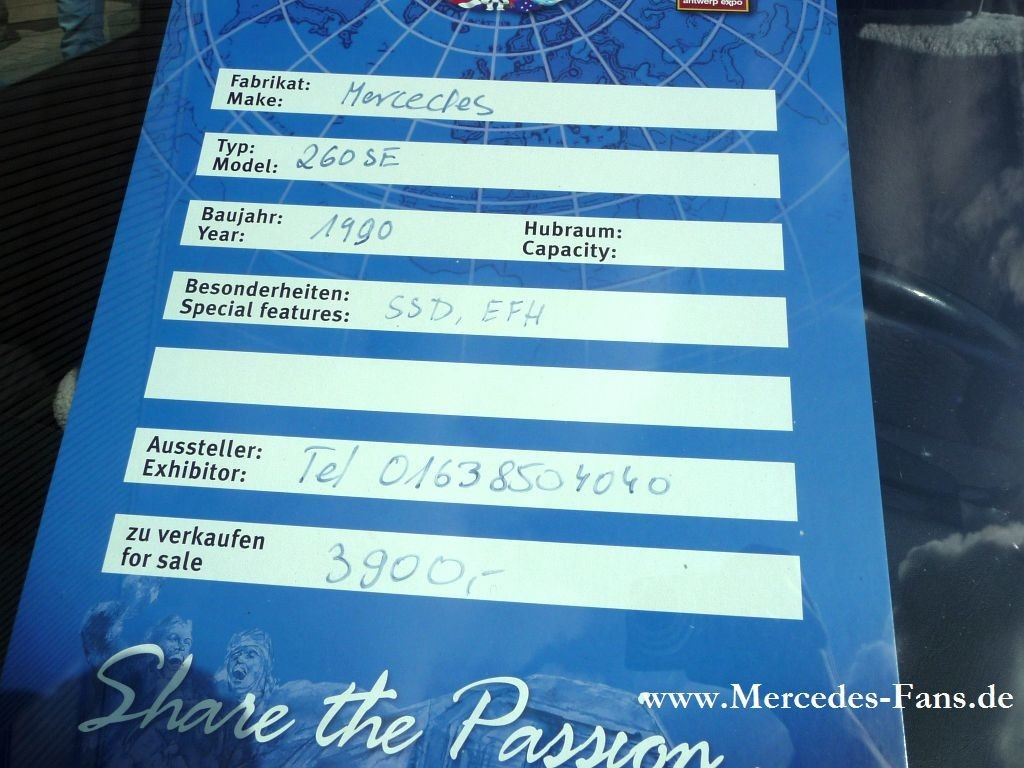 antwerp expo
Fabrikat:
Make: Mercedes
Typ:
Model: 260SE
Baujahr:
Year: 1990
Hubraum:
Capacity:
Besonderheiten:
Special features: SSD, EFH
Aussteller:
Exhibitor: Tel 01638504040
zu verkaufen
for sale 3900,-
Share the Passion
www.Mercedes-Fans.de